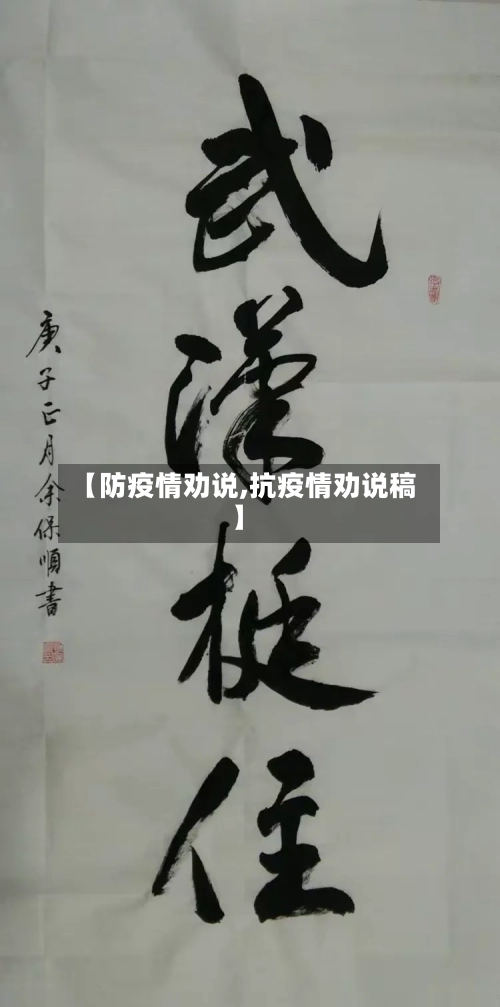 武漢梃住
庚子正月余保順書
【防疫情劝说,抗疫情劝说稿
】